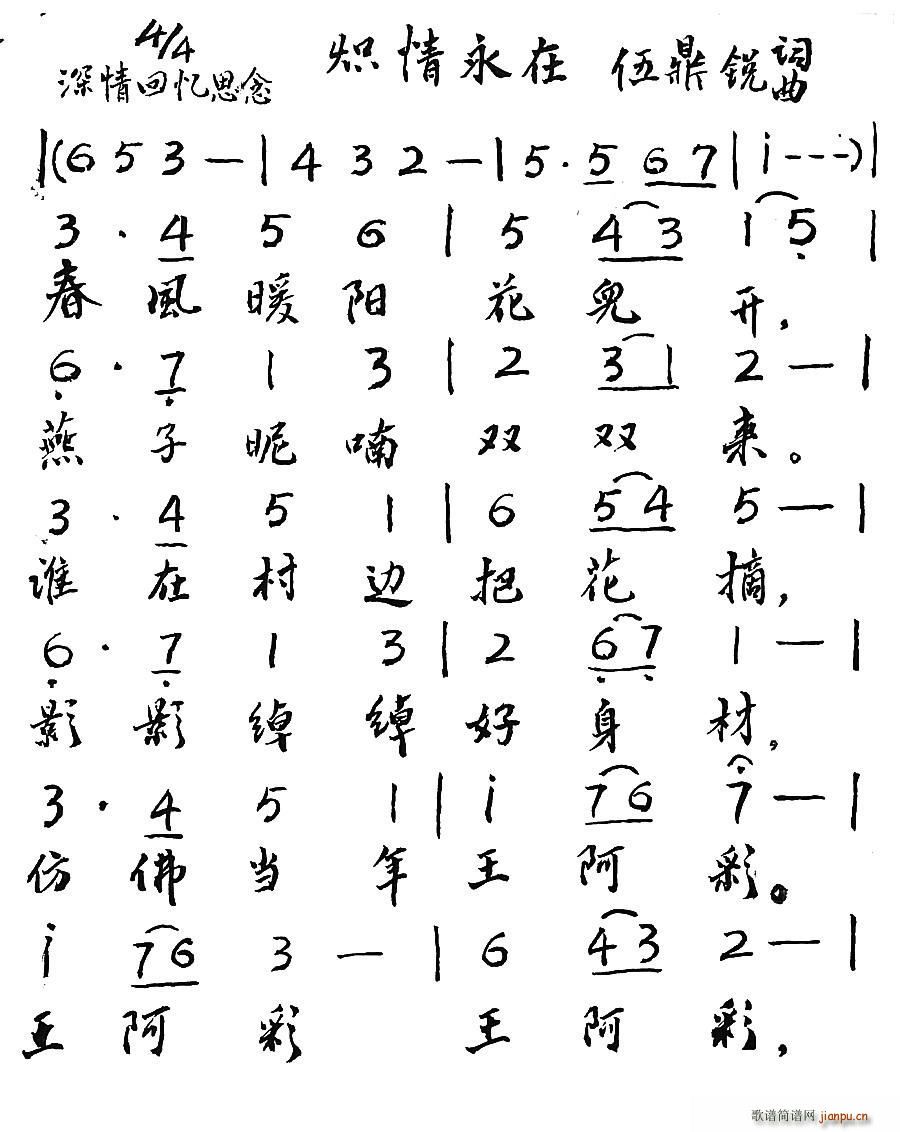 4/4 炽情永在 伍鼎锐 词曲
深情回忆思念
|(6 5 3 — | 4 3 2 — | 5 · 5 6 7 | i - - - )|
3 · 4 5 6 | 5 4 3 1 5 |
春 風 暖 阳 花 兒 开,
6 · 7 1 3 | 2 3 1 2 — |
燕 子 昵 喃 双 双 来。
3 · 4 5 1 | 6 5 4 5 — |
谁 在 村 边 把 花 摘,
6 · 7 1 3 | 2 6 7 1 — |
影 影 绰 绰 好 身 材,
3 · 4 5 1 | i 7 6 7 — |
仿 佛 当 年 王 阿 彩。
i 7 6 3 — | 6 4 3 2 — |
王 阿 彩 王 阿 彩,
歌谱简谱网 jianpu.cn